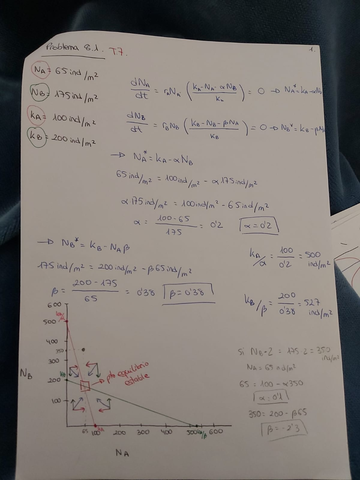 Problema 8.1. T7.
1
NA = 65 ind/m²
NB = 175 ind/m²
KA = 100 ind/m²
KB = 200 ind/m²
dNA/dt = rANA (KA - NA - αNB / KA) = 0 → NA* = KA - αN
dNB/dt = rBNB (KA - NA - βNA / KB) = 0 → NB* = KB - βN
→ NA* = KA - αNB
65 ind/m² = 100 ind/m² - α 175 ind/m²
α 175 ind/m² = 100 ind/m² - 65 ind/m²
α = 100 - 65 / 175 = 0'2 α = 0'2
→ NB* = KB - NAβ
175 ind/m² = 200 ind/m² - β 65 ind/m²
β = 200 - 175 / 65 = 0'38 β = 0'38
KA/α = 100 / 0'2 = 500 ind/m²
KB/β = 200 / 0'38 = 527 ind/m²
600
500
400
300
200
100
NB
pto equilibrio estable
65 100 200 300 400 500
NA
Si NB·2 = 175·2 = 350 ind/m²
NA = 65 ind/m²
65 = 100 - α350
α = 0'1
350 = 200 - β65
β = -2'3